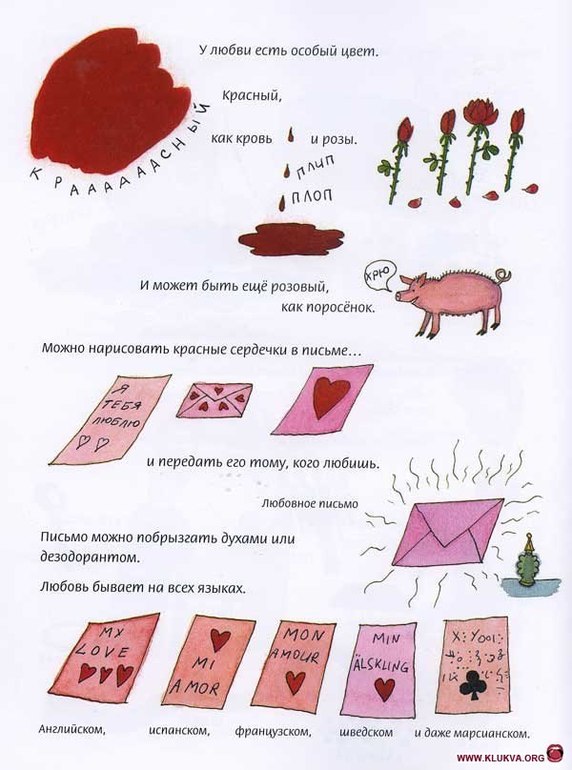 У любви есть особый цвет.
КРАААААСНЫЙ
Красный,
как кровь и розы.
ПЛИП
ПЛОП
И может быть ещё розовый,
как поросёнок.
ХРЮ
Можно нарисовать красные сердечки в письме...
Я
ТЕБЯ
ЛЮБЛЮ
и передать его тому, кого любишь.
Любовное письмо
Письмо можно побрызгать духами или
дезодорантом.
Любовь бывает на всех языках.
MY
LOVE
MI
AMOR
MON
AMOUR
MIN
ÄLSKLING
Английском, испанском, французском, шведском и даже марсианском.
WWW.KLUKVA.ORG